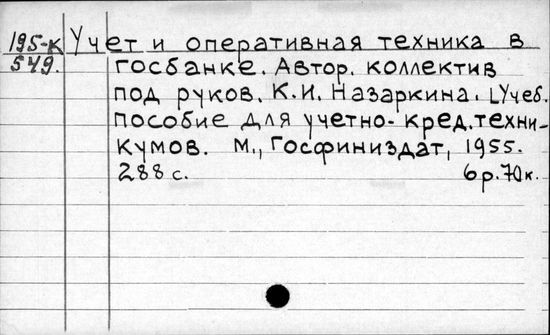 195-К Учет и оперативная техника в
549. госбанке. Автор. коллектив
под руков. К.И. Назаркина. [Учеб.
пособие для учетно-кред.техни-
кумов. М., Госфиниздат, 1955.
288 с. 6 р. 70 к.